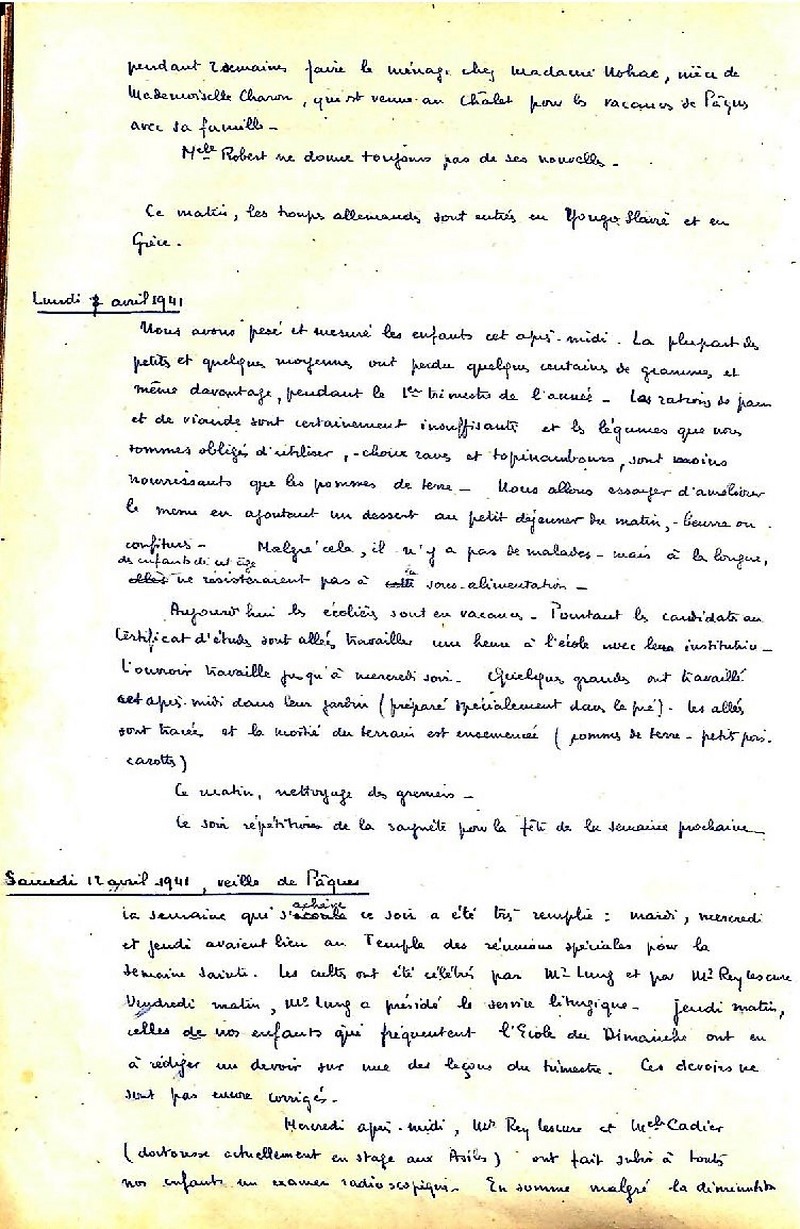 pendant 2 semaines faire le ménage chez Madame Nohac, nièce de
Mademoiselle Charon, qui est venue au Châlet pour les vacances de Pâques
avec sa famille -
Melle Robert ne donne toujours pas de ses nouvelles -
Ce matin, les troupes allemandes sont entrées en Yougo Slavie et en
Grèce.
Lundi 7 avril 1941
Nous avons pesé et mesuré les enfants cet après-midi. La plupart des
petits et quelques moyennes ont perdu quelques centaines de grammes et
même davantage, pendant le 1er trimestre de l'année - Les rations de pain
et de viande sont certainement insuffisantes et les légumes que nous
sommes obligés d'utiliser, - choux raves et topinambours, sont moins
nourrissants que les pommes de terre - Nous allons essayer d'améliorer
le menu en ajoutant un dessert au petit déjeuner du matin, - beurre ou
confitures - Malgré cela, il n'y a pas de malades - mais à la longue,
des enfants de cet âge
elles ne résisteraient pas à cette la sous-alimentation -
Aujourd'hui les écoliers sont en vacances - Pourtant les candidats au
Certificat d'études sont allées travailler une heure à l'école avec leur institutrice -
L'ouvroir travaille jusqu'à mercredi soir. Quelques grandes ont travaillé
cet après-midi dans leur jardin (préparé spécialement dans le pré). les allées
sont tracées et la moitié du terrain est ensemencée (pommes de terre - petit pois -
carottes)
Ce matin, nettoyage des greniers -
Ce soir répétition de la saynète pour la fête de la semaine prochaine -
Samedi 12 avril 1941, veille de Pâques
La semaine qui s'écoule achève ce soir a été très remplie : mardi, mercredi
et jeudi avaient lieu au Temple des réunions spéciales pour la
Semaine Sainte. Les cultes ont été célébrés par Mr Lung et par Mr Rey Lescure
Vendredi matin, Mr Lung a présidé le service liturgique - Jeudi matin,
celles de nos enfants qui fréquentent l'Ecole du Dimanche ont eu
à rédiger un devoir sur une des leçons du trimestre. Ces devoirs ne
sont pas encore corrigés.
Mercredi après-midi, Mr Rey Lescure et Melle Cadier
(doctoresse actuellement en stage aux Asiles) ont fait subir à toutes
nos enfants un examen radioscopique. En somme malgré la diminution